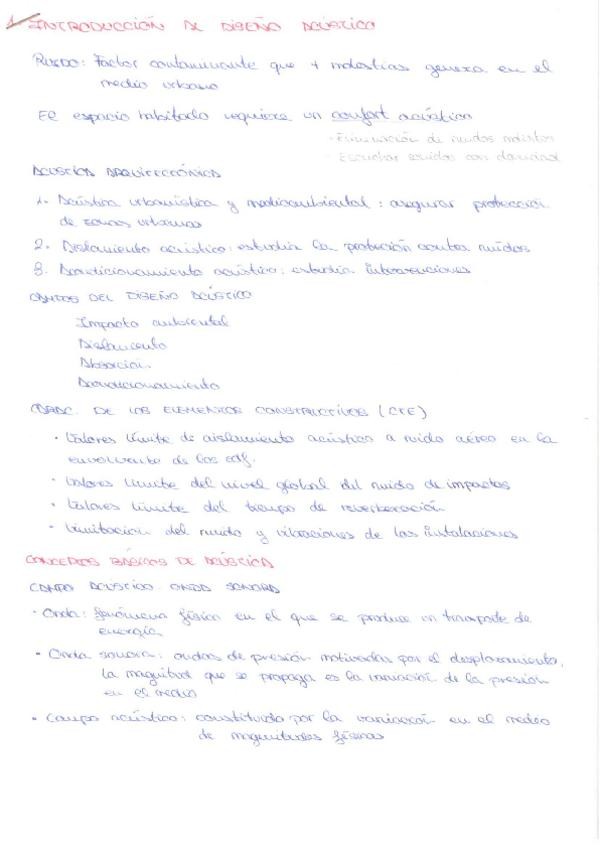 1. INTRODUCCIÓN DE DISEÑO ACÚSTICO
RUIDO: Factor contaminante que + molestias genera en el
medio urbano
El espacio habitado requiere un confort acústico
- Eliminación de ruidos molestos
- Escuchar sonidos con claridad
ACÚSTICA ARQUITECTÓNICA
1. Acústica urbanística y medioambiental: asegurar protección
de zonas urbanas
2. Aislamiento acústico: estudia la protección contra ruidos
3. Acondicionamiento acústico: estudia intervenciones
CAMPOS DEL DISEÑO ACÚSTICO
Impacto ambiental
Aislamiento
Absorción
Acondicionamiento
DE LOS ELEMENTOS CONSTRUCTIVOS (CTE)
· Valores límite de aislamiento acústico a ruido aéreo en la
envolvente de los edf.
· Valores límite del nivel global del ruido de impactos
· Valores límite del tiempo de reverberación
· Limitación del ruido y vibraciones de las instalaciones
CONCEPTOS BÁSICOS DE ACÚSTICA
CAMPO ACÚSTICO. ONDA SONORA
· Onda: fenómeno físico en el que se produce un transporte de
energía
· Onda sonora: ondas de presión motivadas por el desplazamiento,
la magnitud que se propaga es la variación de la presión
en el medio
· Campo acústico: constituido por la variación en el medio
de magnitudes físicas